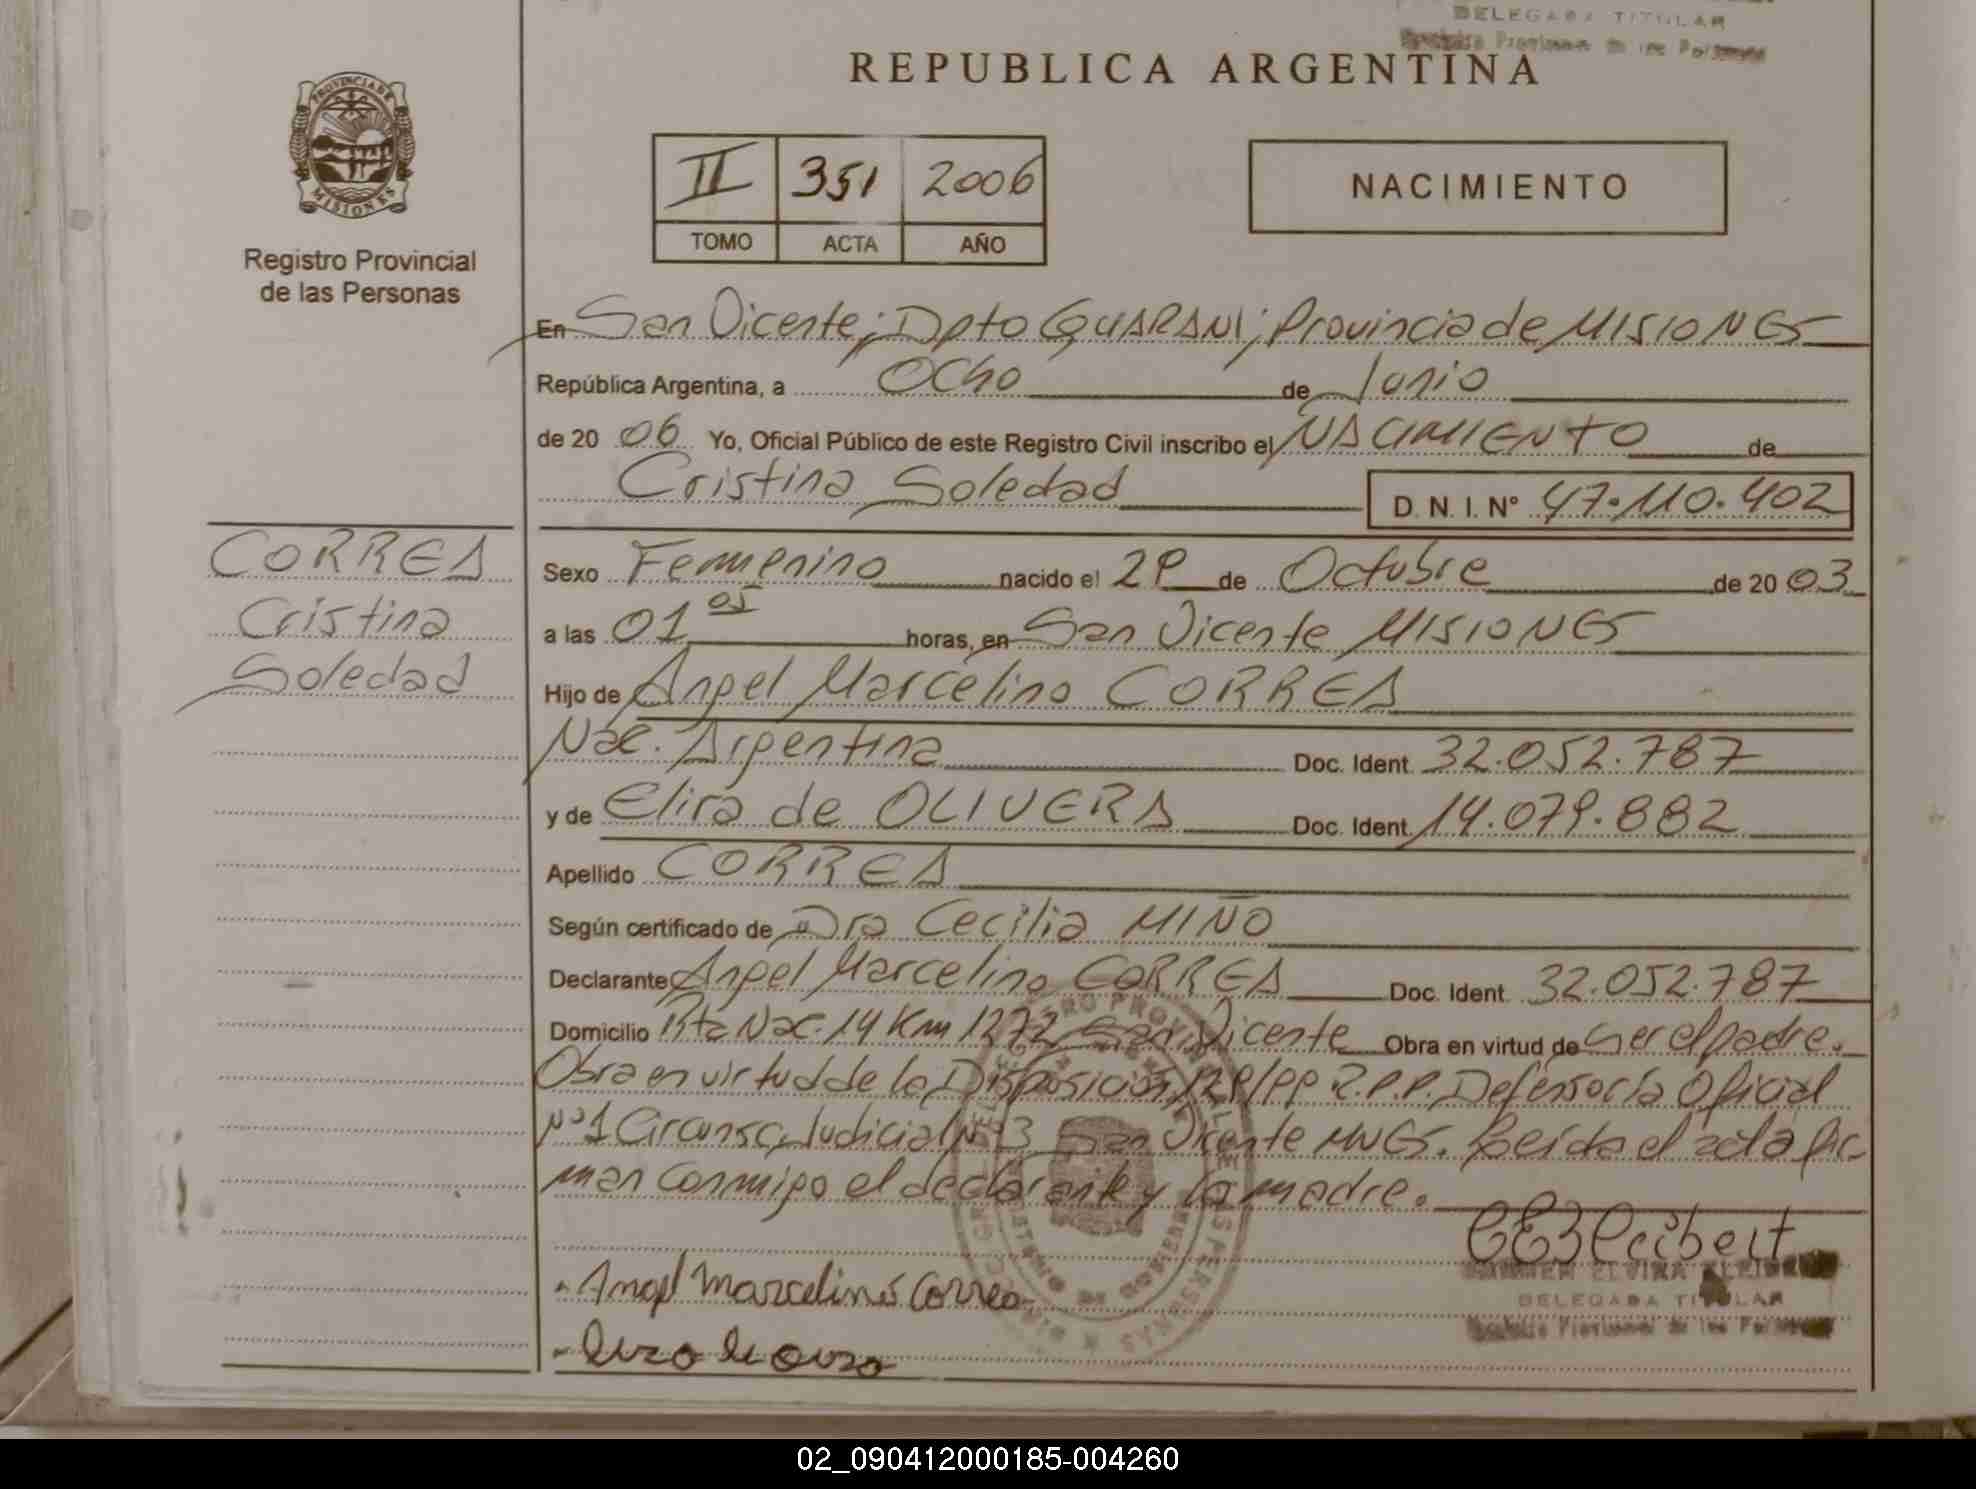 DELEGADA TITULAR
Registro Provincial de las Personas
REPUBLICA ARGENTINA
PROVINCIA DE MISIONES
Registro Provincial
de las Personas
II 351 2006
TOMO ACTA AÑO
NACIMIENTO
En San Vicente; Dpto GUARANI; Provincia de MISIONES
República Argentina, a Ocho de Junio
de 20 06 Yo, Oficial Público de este Registro Civil inscribo el NACIMIENTO de
Cristina Soledad D. N. I. N° 47.110.402
CORREA
Cristina
Soledad
Sexo Femenino nacido el 29 de Octubre de 20 03
a las 01 05 horas, en San Vicente MISIONES
Hijo de Angel Marcelino CORREA
Nac. Argentina Doc. Ident. 32.052.787
y de Elira de OLIVERA Doc. Ident. 14.079.882
Apellido CORREA
Según certificado de Dra Cecilia MIÑO
Declarante Angel Marcelino CORREA Doc. Ident. 32.052.787
Domicilio Rta Nac. 14 Km 1272 San Vicente Obra en virtud de ser el padre.
Obra en virtud de la Disposición 129/99 R.P.P. Defensoría Oficial
N°1 Circunsc. Judicial N°3 San Vicente MNES. Leída el acta fir
man conmigo el declarante y la madre.
Angel Marcelino Correa
DELEGADA TITULAR
Registro Provincial de las Personas
02_090412000185-004260